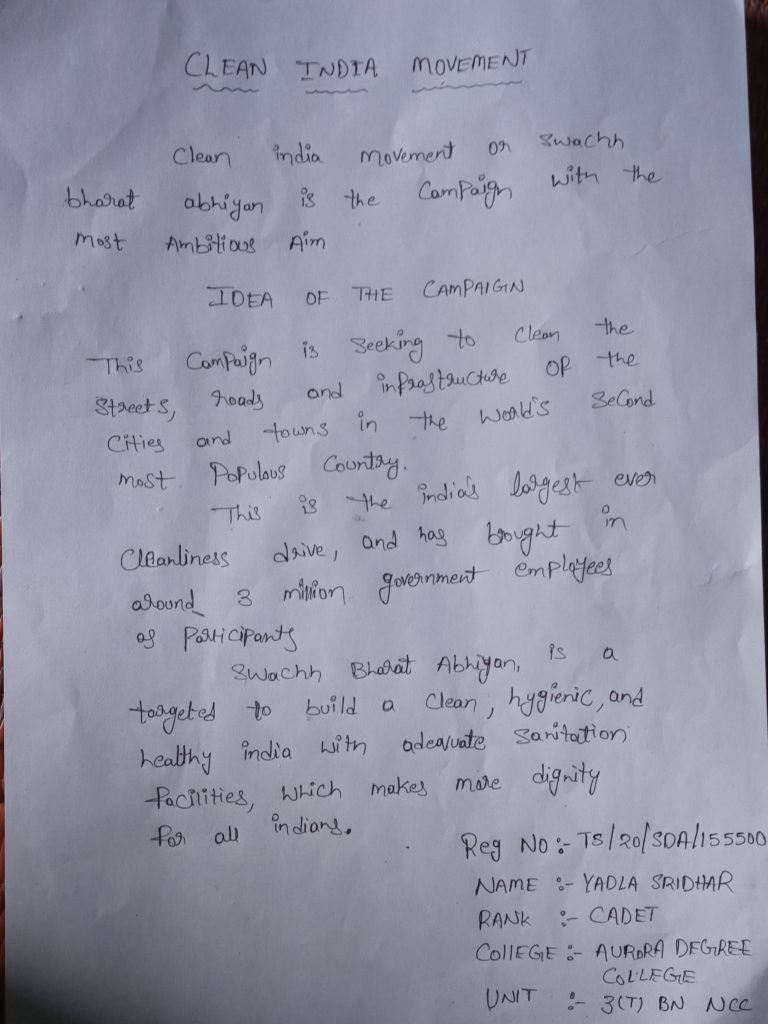 CLEAN INDIA MOVEMENT
Clean india movement or Swachh
bharat abhiyan is the Campaign with the
most Ambitious Aim
IDEA OF THE CAMPAIGN
This Campaign is Seeking to Clean the
Streets, roads and infrastructure of the
Cities and towns in the World's Second
most Populous Country.
This is the india's largest ever
Cleanliness drive, and has brought in
around 3 million government employees
as Participants
Swachh Bharat Abhiyan, is a
targeted to build a Clean, hygienic, and
healthy india with adeavuate Sanitation
facilities, Which makes more dignity
for all indians.
Reg No :- TS/20/SDA/155500
NAME :- YADLA SRIDHAR
RANK :- CADET
COllEGE :- AURORA DEGREE
COLLEGE
UNIT :- 3(T) BN NCC